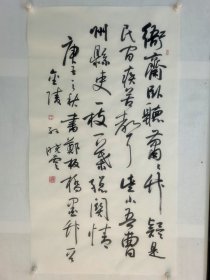 衙齋臥聽蕭〻竹疑是
民間疾苦聲些小吾曹
州縣吏一枝一葉總關情
之秋書鄭板橋墨竹
金陵孫曉雲